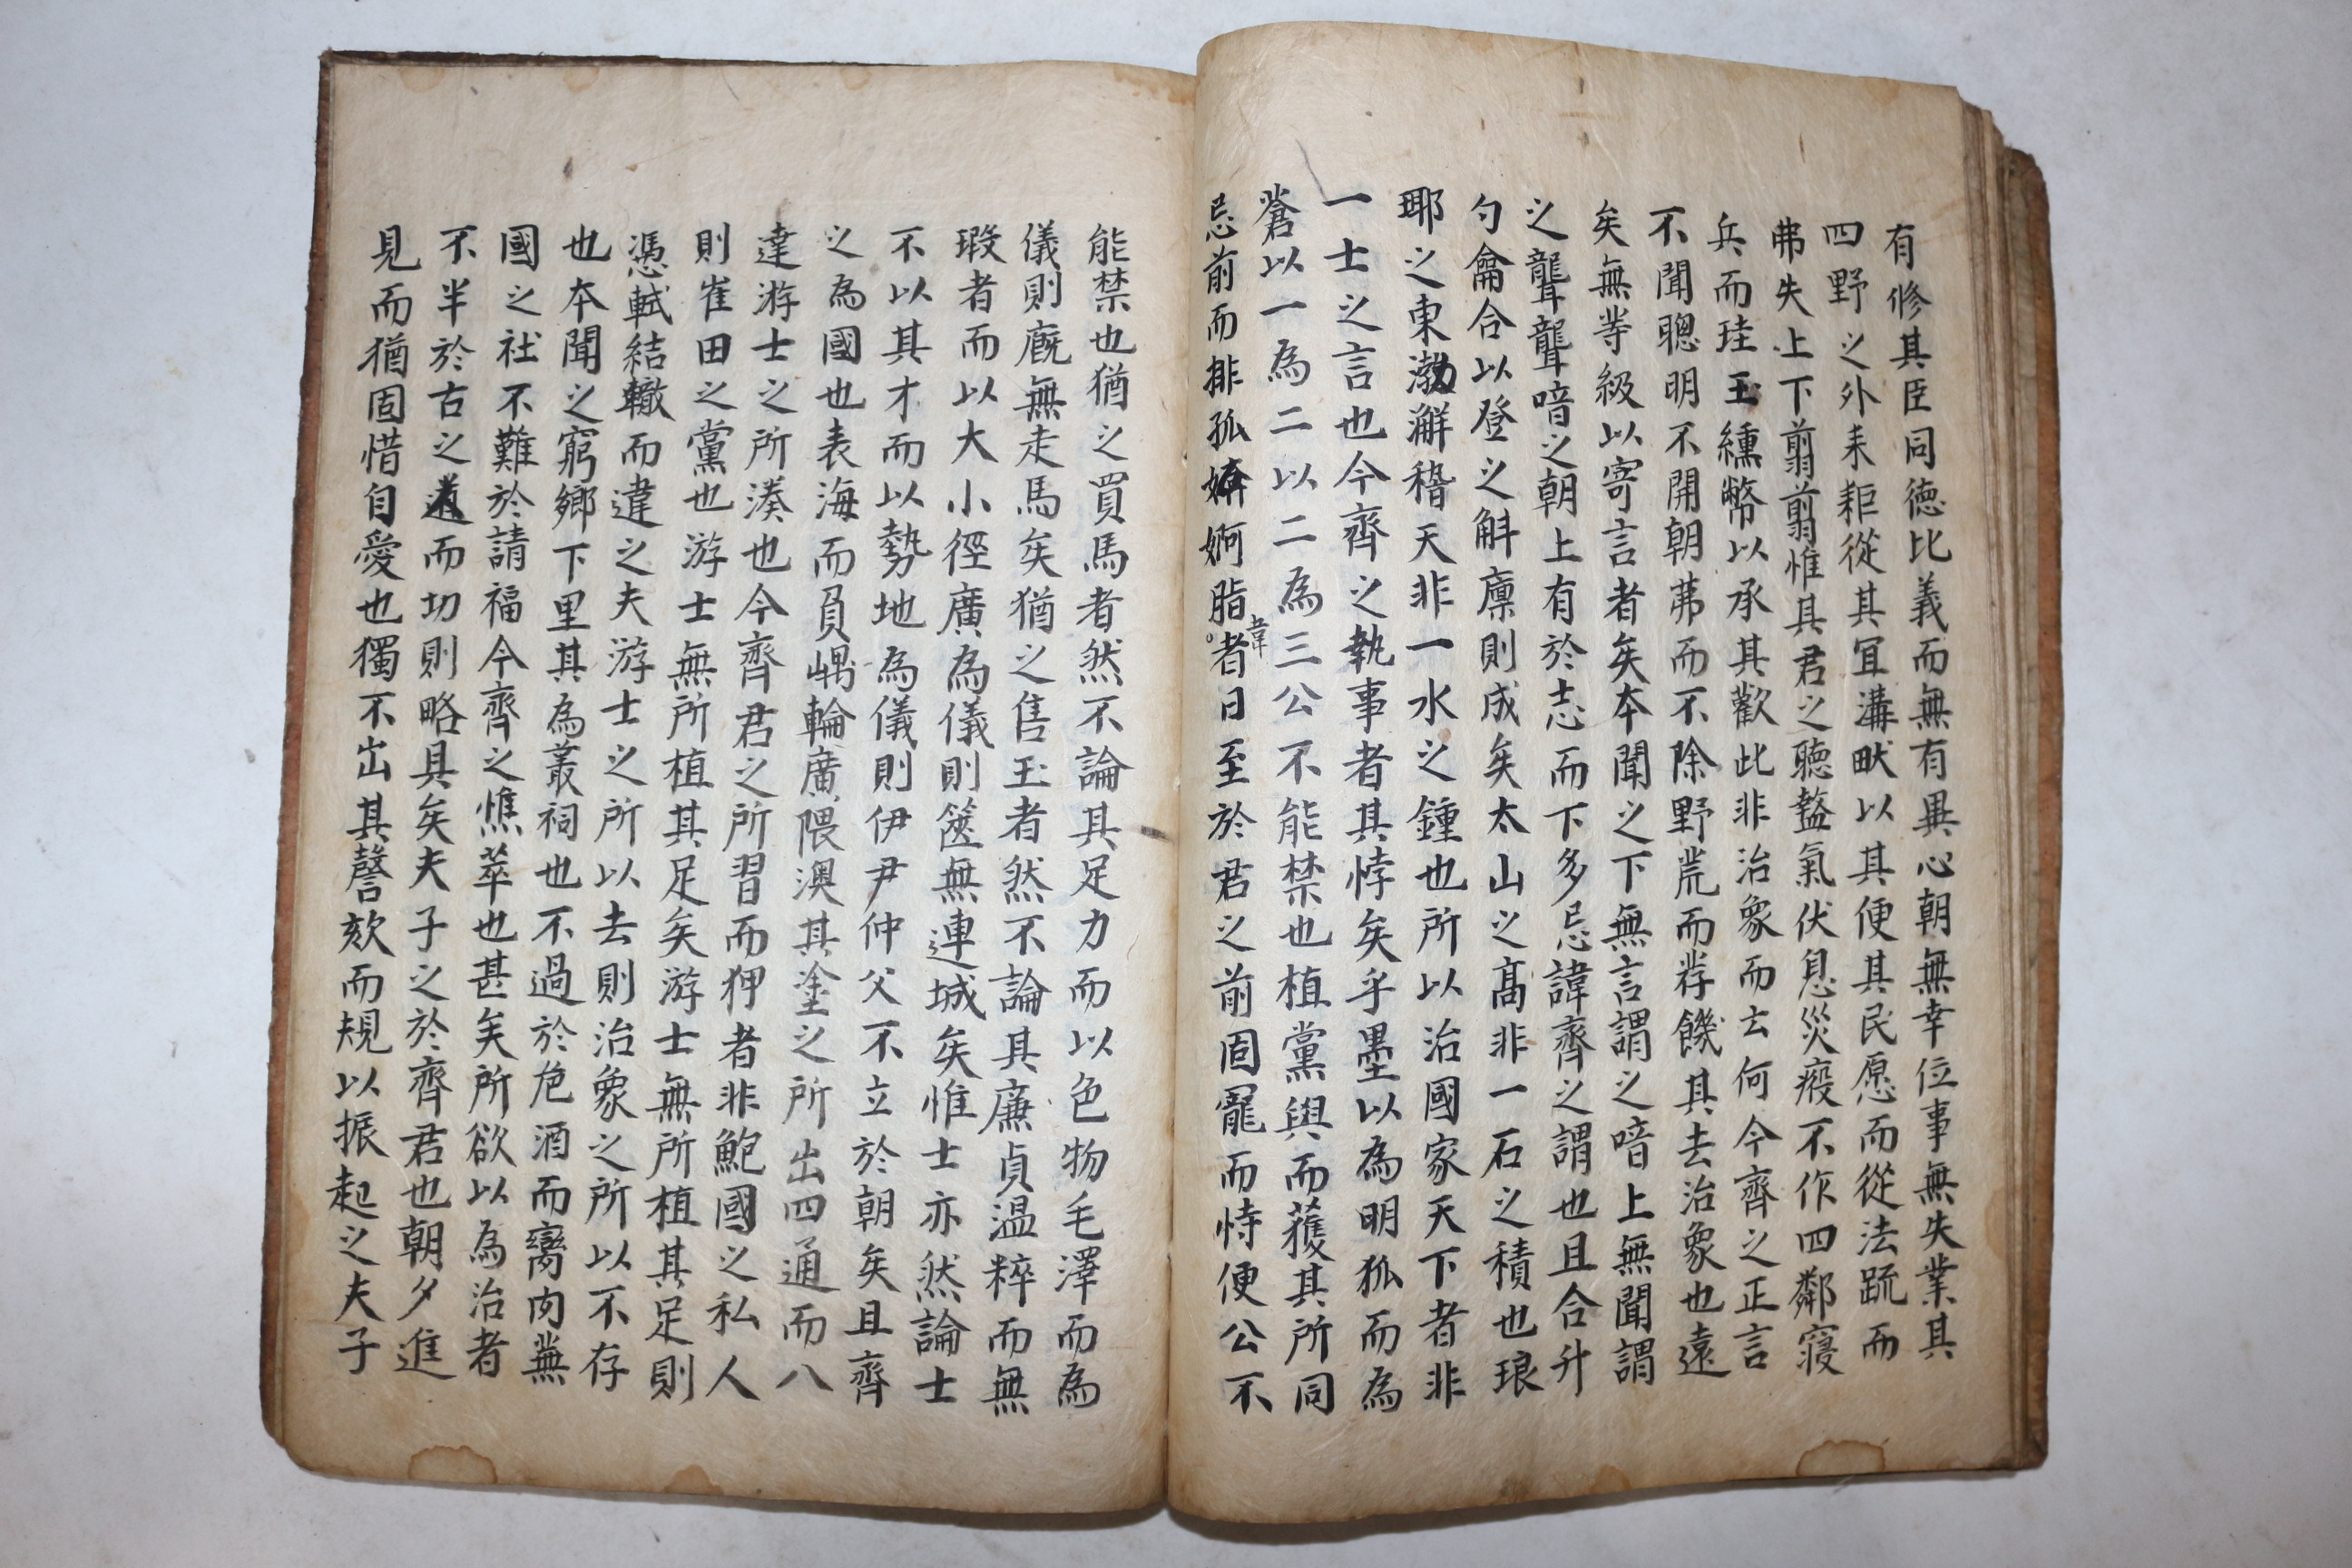 有修其臣同德比義而無有異心朝無幸位事無失業其
四野之外耒耟從其宜溝畎以其便其民愿而從法䟽而
弗失上下翦翦惟其君之聽盭氣伏息災癘不作四鄰寑
兵而珪玉纁幣以承其歡此非治象而去何今齊之正言
不聞聰明不開朝茀而不除野荒而荐饑其去治象也遠
矣無等級以寄言者矣本聞之下無言謂之喑上無聞謂
之聾聾喑之朝上有於志而下多忌諱齊之謂也且合升
勺龠合以登之斛廪則成矣太山之高非一石之積也琅
耶之東渤澥稽天非一水之鍾也所以治國家天下者非
一士之言也今齊之執事者其悖矣乎墨以為明狐而為
蒼以一為二以二為三公不能禁也植黨與而獲其所同
忌前而排孤媕婀脂韋者日至於君之前固寵而恃便公不
能禁也猶之買馬者然不論其足力而以色物毛澤而為
儀則廐無走馬矣猶之售玉者然不論其廉貞温粹而無
瑕者而以大小徑廣為儀則篋無連城矣惟士亦然論士
不以其才而以勢地為儀則伊尹仲父不立於朝矣且齊
之為國也表海而負嵎輪廣隈澳其塗之所出四通而八
達游士之所湊也今齊君之所習而狎者非鮑國之私人
則崔田之黨也游士無所植其足矣游士無所植其足則
憑軾結轍而違之夫游士之所以去則治象之所以不存
也本聞之窮鄉下里其為叢祠也不過於巵酒而臠肉蕪
國之社不難於請福今齊之憔萃也甚矣所欲以為治者
不半於古之道而切則略具矣夫子之於齊君也朝夕進
見而猶固惜自愛也獨不出其謦欬而規以振起之夫子